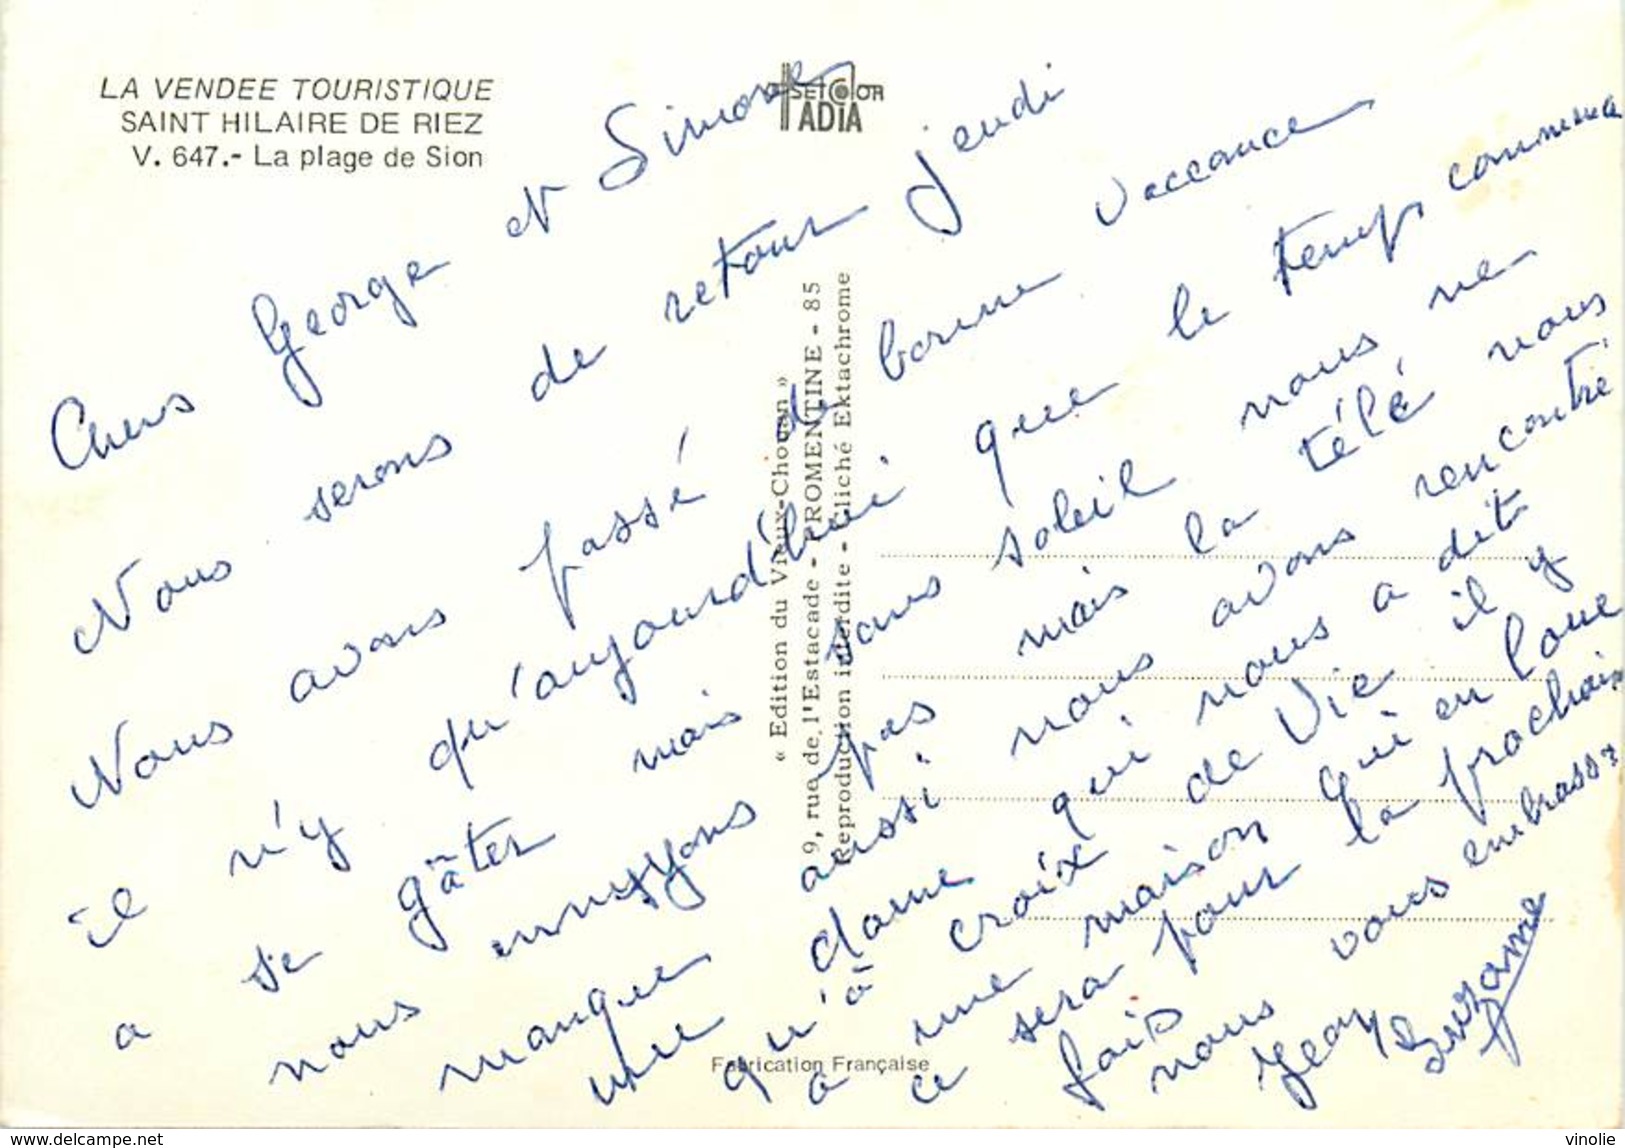 LA VENDEE TOURISTIQUE
SAINT HILAIRE DE RIEZ
V. 647.- La plage de Sion
SETCOLOR
TADIA
« Edition du Vieux-Chouan »
9, rue de l'Estacade - FROMENTINE - 85
Reproduction interdite - Cliché Ektachrome
Fabrication Française
Chers George et Simone
Nous serons de retour jeudi
Nous avons passé de bonne vaccance
il n'y qu'aujourd'hui que le temps commence
a se gâter mais sans soleil nous ne
nous ennuyons pas mais la télé nous
manque aussi nous avons rencontré
une dame qui nous a dit
qu'à croix de Vie il y
a une maison qui en loue
ce sera pour la prochain
fois
nous vous embrassz
Jean Suzanne
www.delcampe.net
vinolie